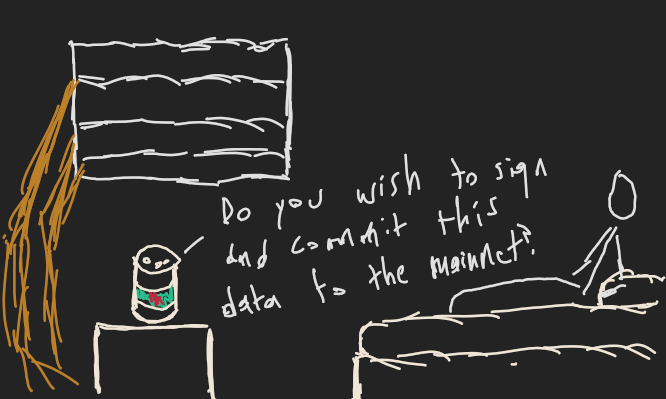 Do you wish to sign
and commit this
data to the mainnet?